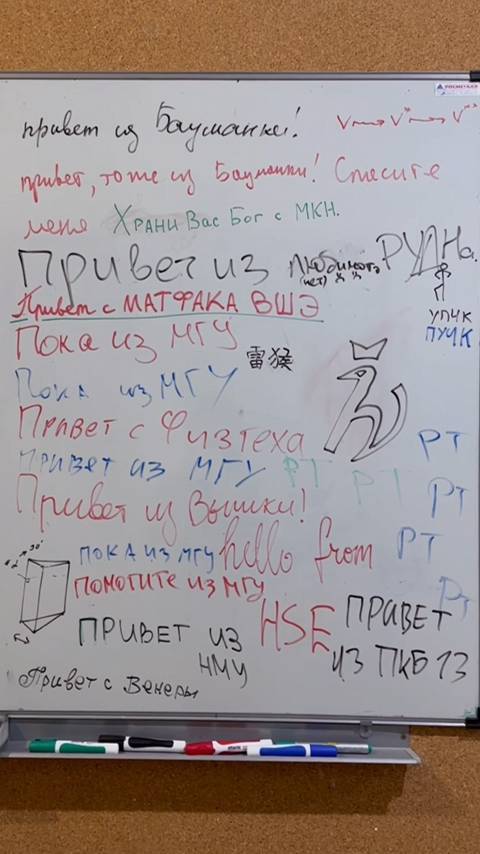 привет из Бауманки!
V → V* → V**
привет, тоже из Бауманки! Спасите
меня Храни Вас Бог с МКН.
Привет из любимого РУДНа.
(нет)
Привет с МАТФАКА ВШЭ
УПЧК
ПУЧК
Пока из МГУ
雷猴
Пока из МГУ
Привет с Физтеха
РТ
Привет из МГУ РТ РТ РТ
Привет из Вышки!
пока из МГУ hello from РТ
помогите из МГУ
РТ
ПРИВЕТ ИЗ HSE ПРИВЕТ
НМУ ИЗ ПКБ 13
Привет с Венеры